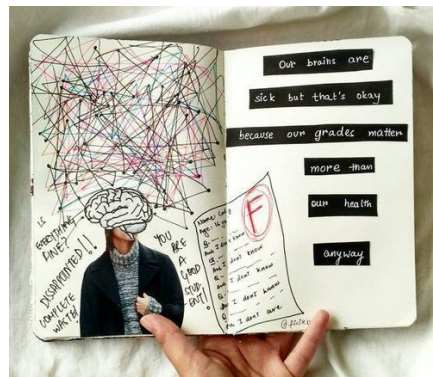 IS
EVERYTHING
FINE?
DISAPPOINTED!!
COMPLETE
WASTE!
YOU
ARE
A
GOOD
STUD-
ENT!
Name:
Age: 16
I don't know
I don't know
I don't know
I don't know
I don't know
I don't care
F
Our brains are
sick but that's okay
because our grades matter
more than
our health
anyway